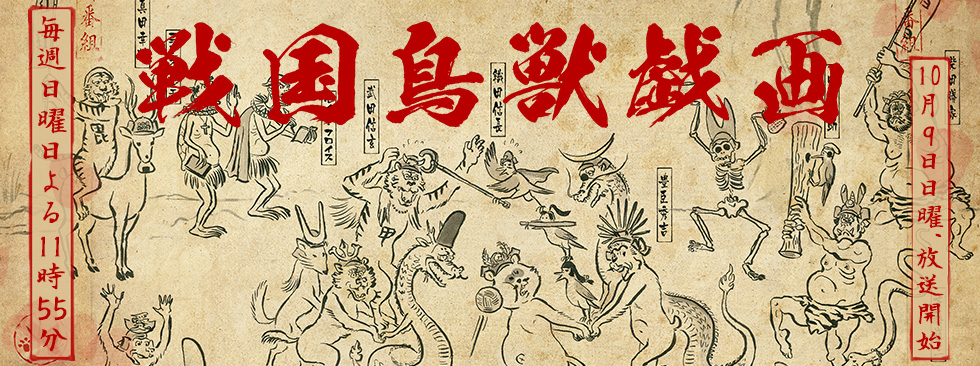 戦国鳥獣戯画
毎週日曜日よる11時55分
10月9日日曜、放送開始
番組
番組
真田幸
フロイス
武田信玄
織田信長
豊臣秀吉
柴田勝家
毘